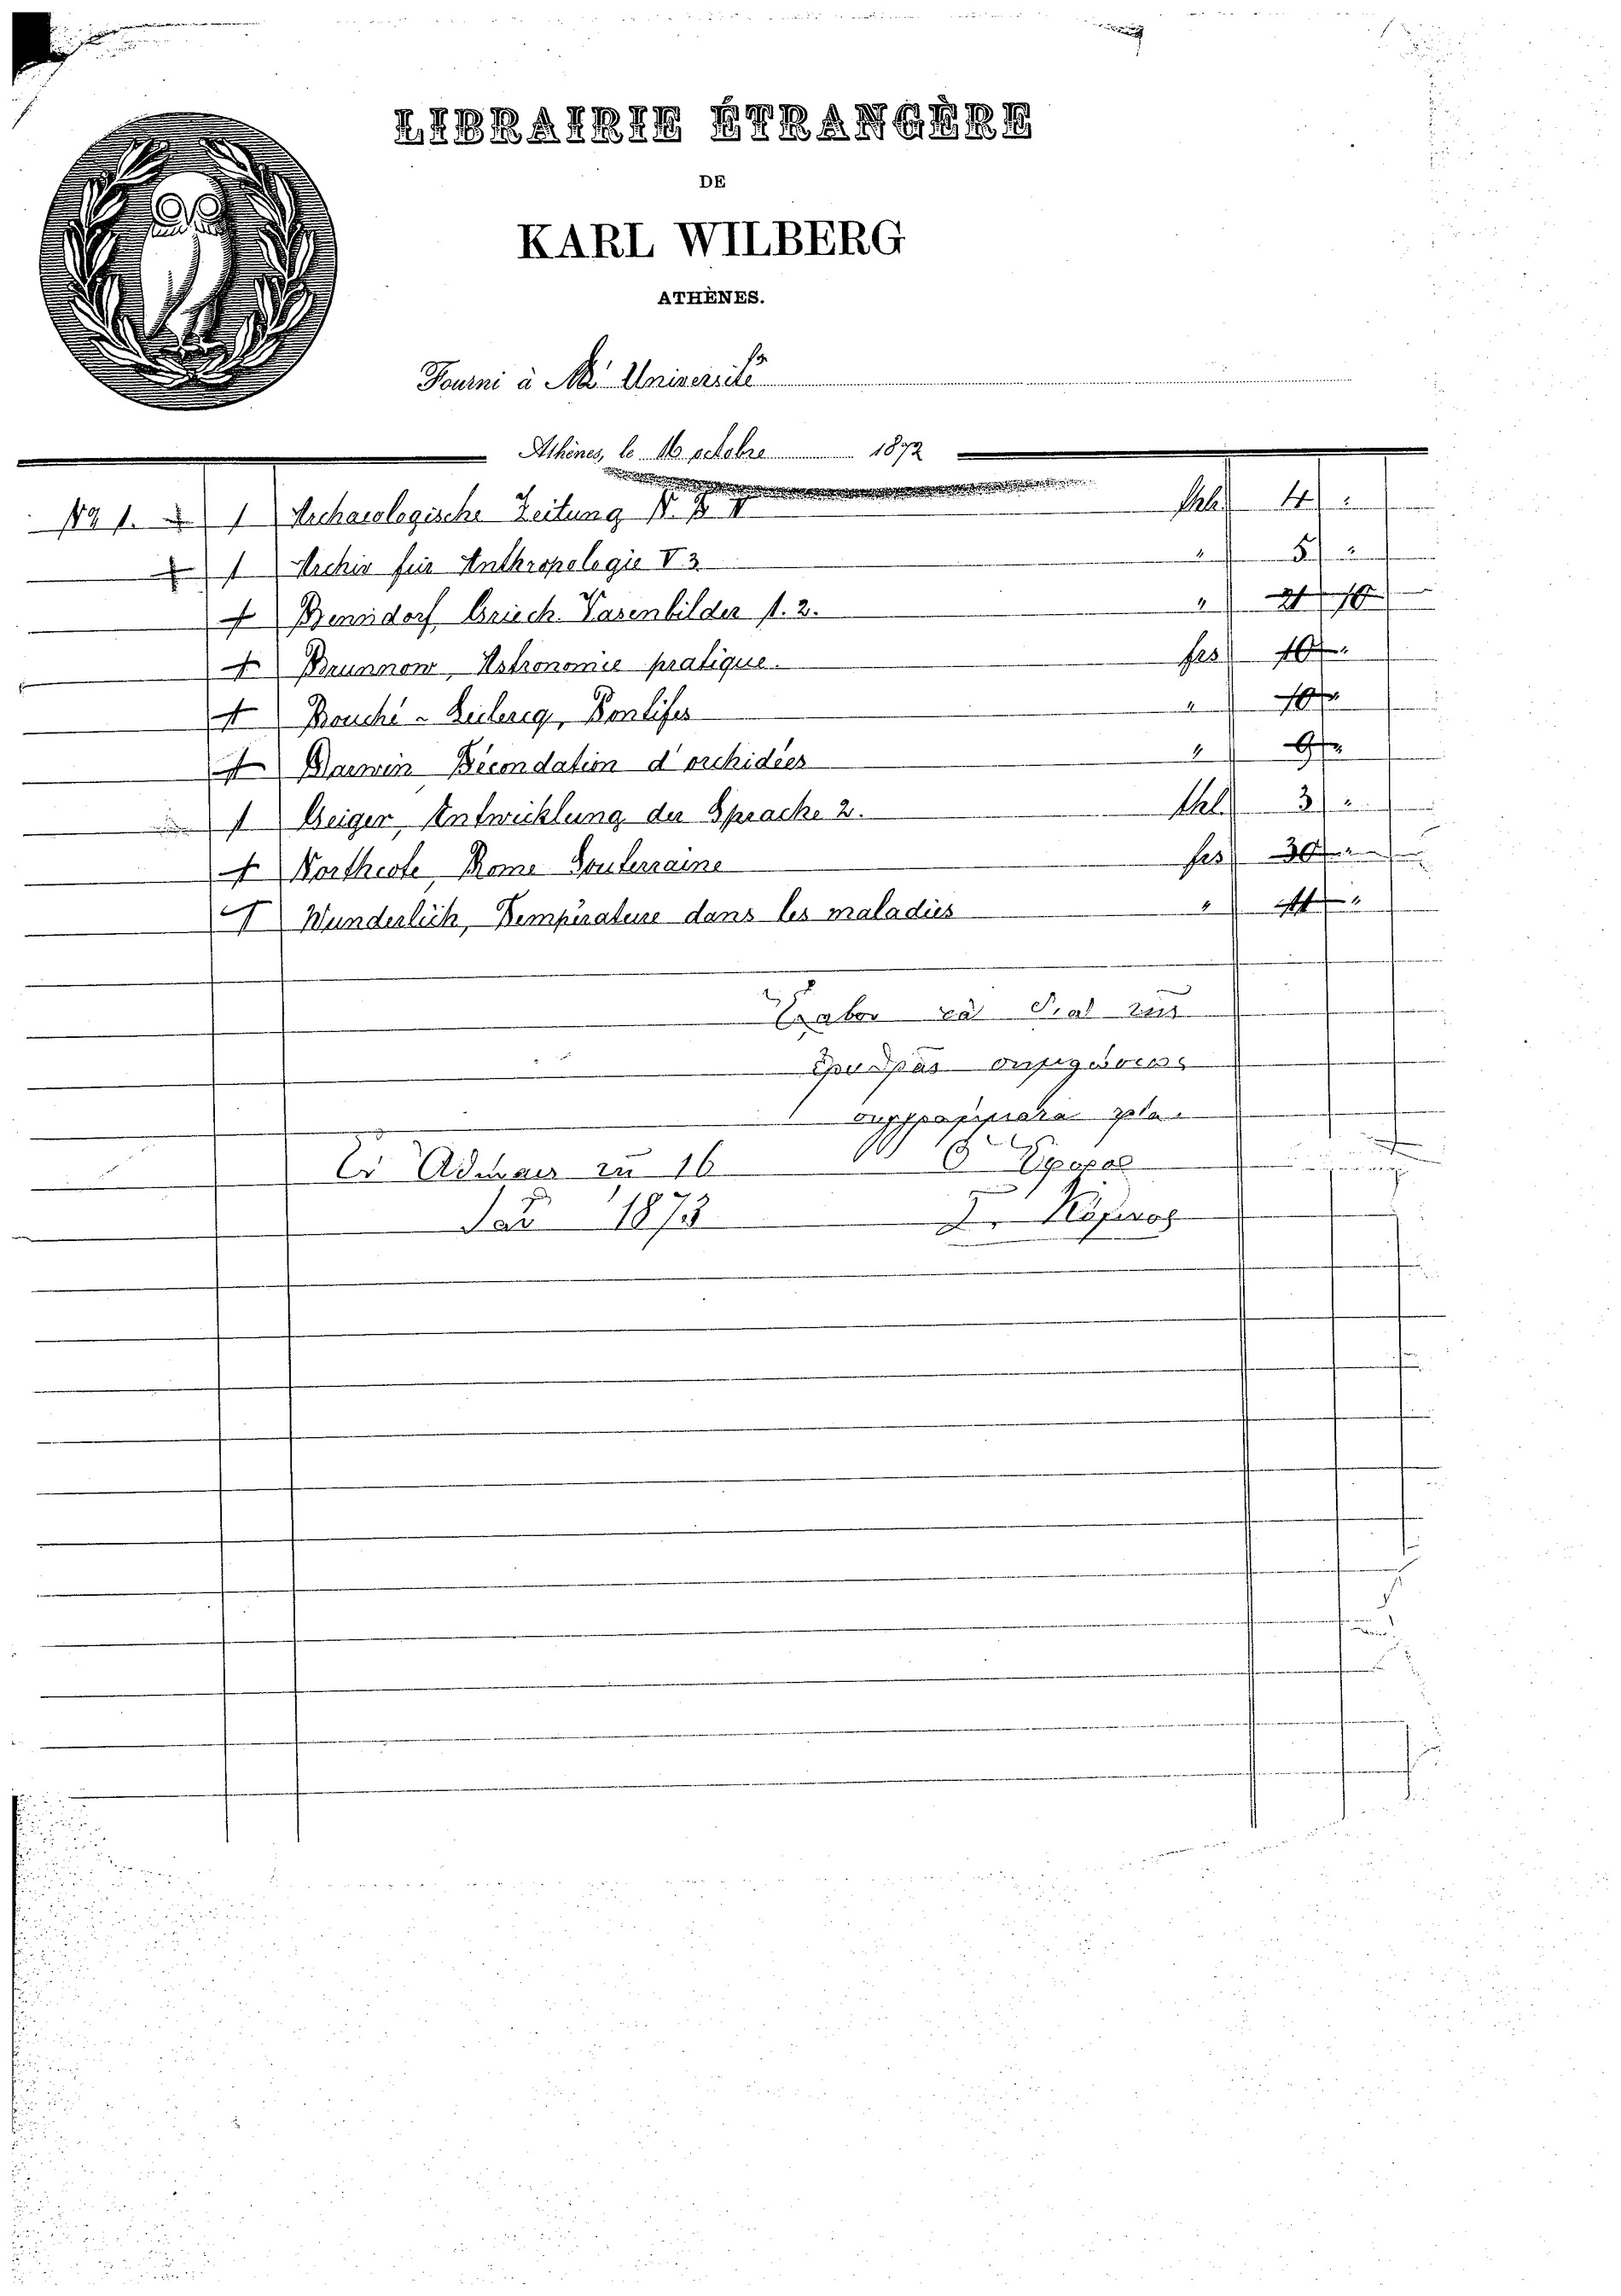 LIBRAIRIE ÉTRANGÈRE
DE
KARL WILBERG
ATHÈNES.
Fourni à Mr Université
Athènes, le 16 octobre 1872
1 Archaeologische Zeitung N. F. V Thl. 4 "
1 Archiv für Anthropologie V 3 " 5 "
1 Benndorf Griech. Vasenbilder 1. 2. "
1 Brunnow, Astronomie pratique. frs 10 "
1 Bouché-Leclercq, Pontifes " 10 "
1 Darwin Fécondation d'orchidées "
1 Geiger, Entwicklung der Sprache 2. Thl. 3 "
1 Northcote, Rome Souterraine frs 30 "
1 Wunderlich, Température dans les maladies "
Ἔλαβον τὰ διὰ τῆς
ἐρυθρᾶς σημειώσεως
συγγράμματα
Ἐν Ἀθήναις τῇ 16 Ὁ Ἔφορος
1873